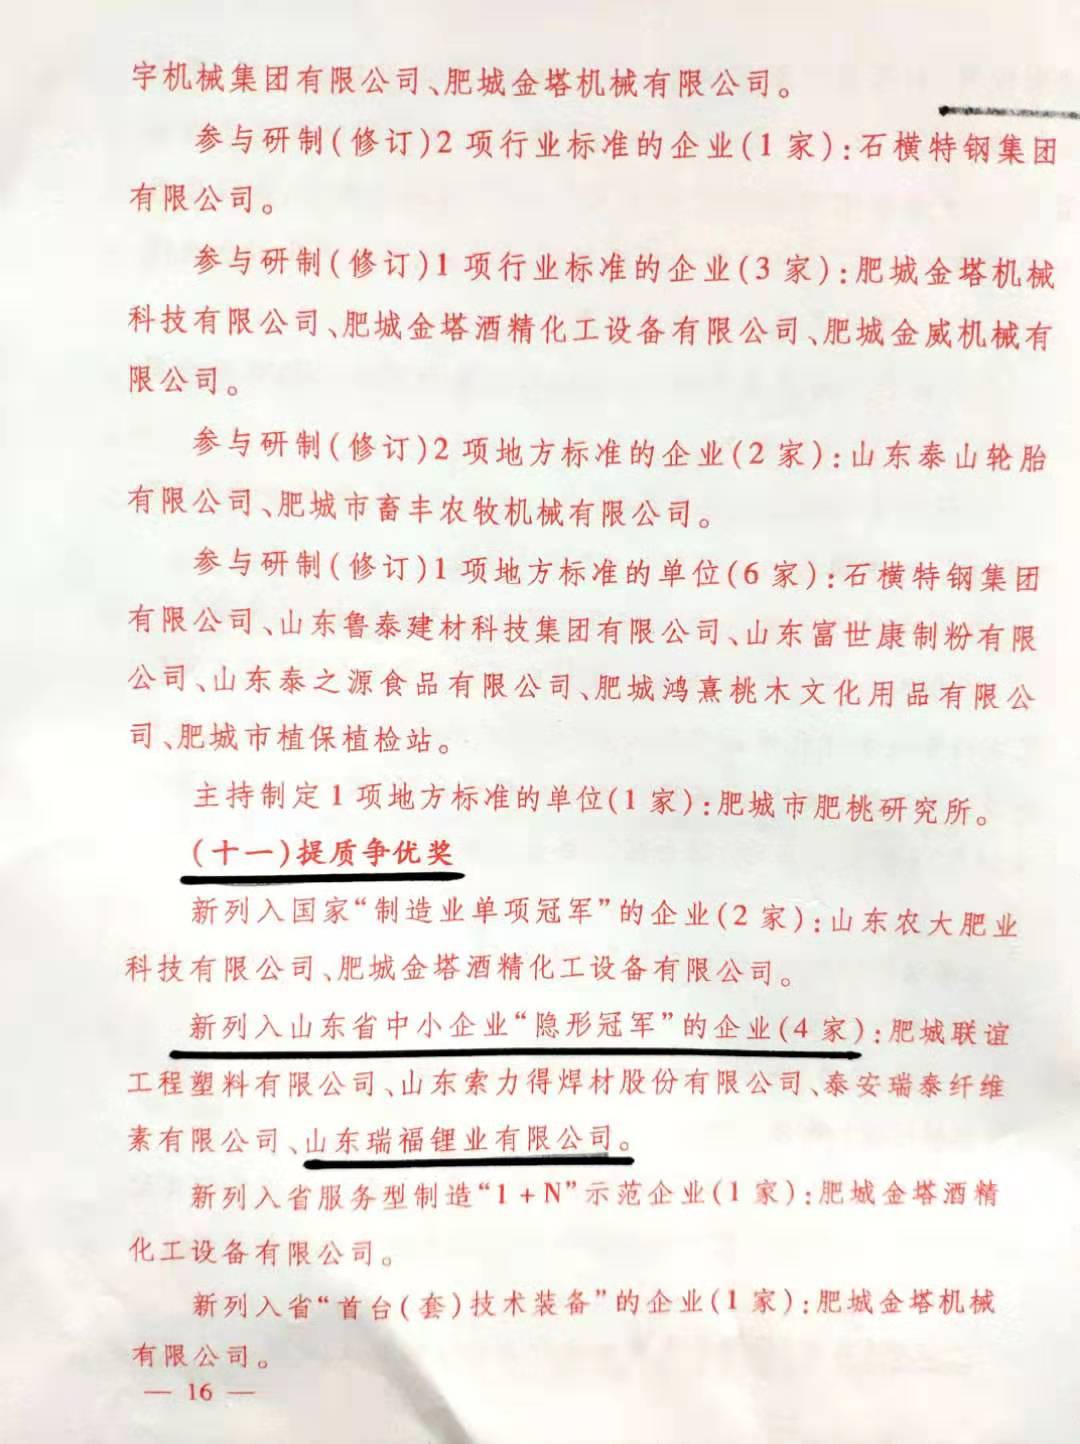 宇机械集团有限公司、肥城金塔机械有限公司。
参与研制(修订)2 项行业标准的企业(1 家):石横特钢集团
有限公司。
参与研制(修订)1 项行业标准的企业(3 家):肥城金塔机械
科技有限公司、肥城金塔酒精化工设备有限公司、肥城金威机械有
限公司。
参与研制(修订)2 项地方标准的企业(2 家):山东泰山轮胎
有限公司、肥城市畜丰农牧机械有限公司。
参与研制(修订)1 项地方标准的单位(6 家):石横特钢集团
有限公司、山东鲁泰建材科技集团有限公司、山东富世康制粉有限
公司、山东泰之源食品有限公司、肥城鸿熹桃木文化用品有限公
司、肥城市植保植检站。
主持制定 1 项地方标准的单位(1 家):肥城市肥桃研究所。
(十一)提质争优奖
新列入国家“制造业单项冠军”的企业(2 家):山东农大肥业
科技有限公司、肥城金塔酒精化工设备有限公司。
新列入山东省中小企业“隐形冠军”的企业(4 家):肥城联谊
工程塑料有限公司、山东索力得焊材股份有限公司、泰安瑞泰纤维
素有限公司、山东瑞福锂业有限公司。
新列入省服务型制造“1+N”示范企业(1 家):肥城金塔酒精
化工设备有限公司。
新列入省“首台(套)技术装备”的企业(1 家):肥城金塔机械
有限公司。
— 16 —